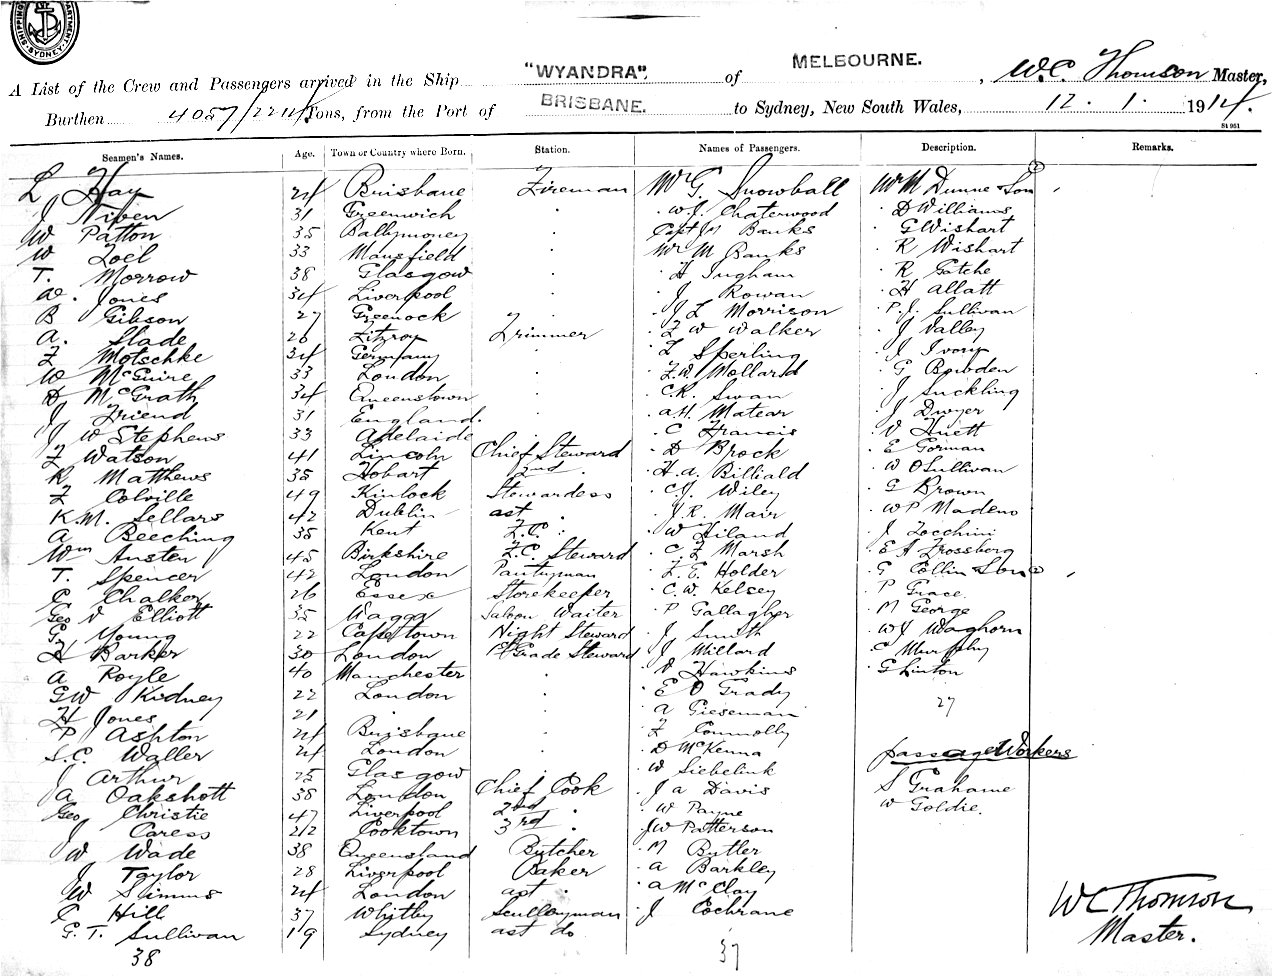 SHIPPING DEPARTMENT. SYDNEY
A List of the Crew and Passengers arrived in the Ship "WYANDRA", of MELBOURNE. , W.C. Thomson Master,
Burthen 4057/2214 Tons, from the Port of BRISBANE. to Sydney, New South Wales, 12 . 1 . 1914.
St 951
Seamen's Names. Age. Town or Country where Born. Station. Names of Passengers. Description. Remarks.
L Hay 24 Brisbane Fireman Mr G. Snowball Mr M Dunne & Son 2
J Niven 31 Greenwich " " W.J. Chaterwood " D Williams
W Patton 35 Ballymoney " Capt Banks " G Wishart
W Zoel 33 Mansfield " Mr M Banks " R Wishart
T. Morrow 38 Glasgow " " H Ingham " R Gatche
W. Jones 34 Liverpool " " J Rowan " H Allatt
B Gibson 27 Greenock " " J L Morrison " P.J. Sullivan
A. Slade 26 Fitzroy Trimmer " F W Walker " J Valley
F Motschke 34 Germany " " L Sperling " J Ivory
W McGuire 33 London " " F.W. Mollard " G Bowden
D McGrath 34 Queenstown " " C.R. Swan " J Suckling
J Friend 31 England. " " A.H. Matear " J Dwyer
J W Stephens 33 Adelaide " " C Francis " V Huett
F Watson 41 Lincoln Chief Steward " D Brock " E Gorman
R Matthews 35 Hobart 2nd " " H.A. Billiald " W OSullivan
F Colville 49 Kinlock Stewardess " C.J. Wiley " G Brown
K.M. Sellars 42 Dublin ast " " J.R. Mair " W P Madeno
A Beeching 35 Kent F.C. " " W Hiland " J Zocchini
Wm Austen 45 Birkshire F.C. Steward " C.F Marsh " E A Frossberg
T. Spencer 42 London Pantryman " F.E. Holder " G Collin & Son 2
C Chalker 26 Essex Storekeeper " C.W. Kelsey " P Grace
Geo V Elliott 35 Wagga Saloon Waiter " P Gallagher " M George
G. Young 22 Capetown Night Steward " J Smith " W J Waghorn
H Barker 30 London F Grade Steward " J Millard " C Murphy
A Royle 40 Manchester " " D Hawkins " G Linton
G W Kidney 22 London " " E O Grady 27
H Jones 21 " " " A Gieseman
P Ashton 24 Brisbane " " F Connolly
S.C. Waller 24 London " " D McKenna passage Workers
J Arthur 25 Glasgow " " W Siebelink
A Oakshott 38 London Chief Cook " J A Davis S Grahame
Geo Christie 47 Liverpool 2nd " " W Payne W Goldie.
J Caress 22 Cooktown 3rd " " J W Patterson
W Wade 38 Queensland Butcher " M Butler
J Taylor 28 Liverpool Baker " A Barkley
W Simms 24 London ast " " A McClay
C Hill 37 Whitby Sculleryman " J Cochrane
G.T. Sullivan 19 Sydney ast do
38 37
WC Thomson
Master.